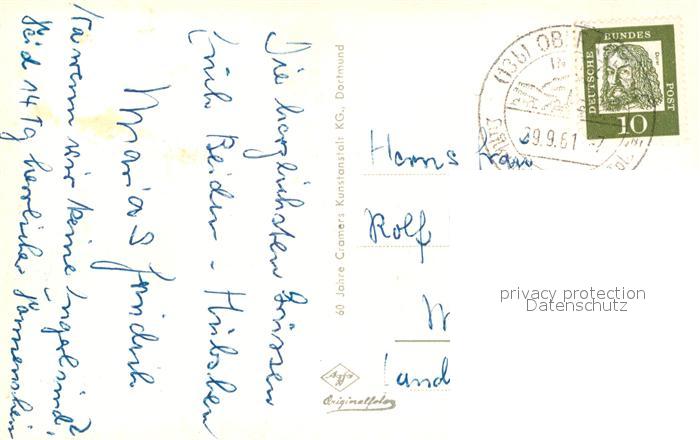 Die herzlichsten Grüssen
Euch Beiden - Hübschen
Maria & Friedrich
Na wenn wir keine Engel sind?
Seid 14 Tg herrlicher Sonnenschein
60 Jahre Cramers Kunstanstalt KG., Dortmund
Agfa
Originalfoto
(13b) OB
IN
29.9.61
DEUTSCHE BUNDES POST
Dürer
10
Herrn & Frau
Rolf
Land
privacy protection
Datenschutz